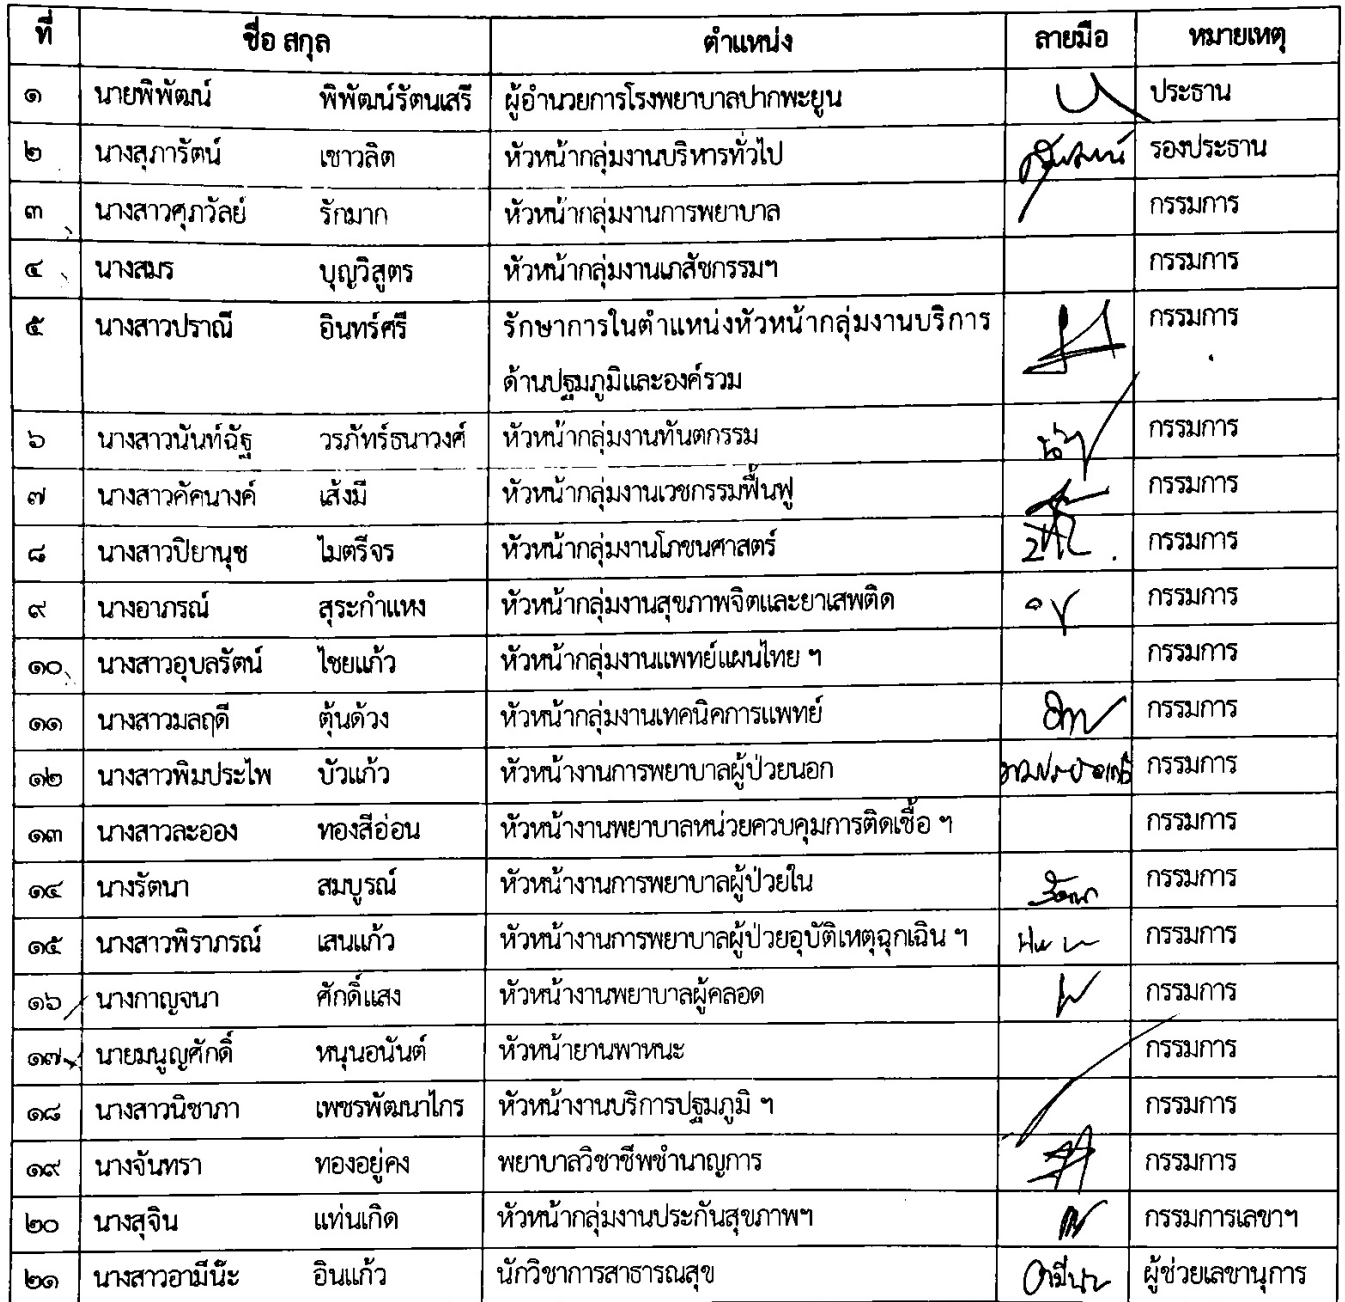 ที่ ชื่อ สกุล ตำแหน่ง ลายมือ หมายเหตุ
๑ นายพิพัฒน์ พิพัฒน์รัตนเสรี ผู้อำนวยการโรงพยาบาลปากพะยูน ประธาน
๒ นางสุภารัตน์ เชาวลิต หัวหน้ากลุ่มงานบริหารทั่วไป รองประธาน
๓ นางสาวศุภวัลย์ รักมาก หัวหน้ากลุ่มงานการพยาบาล กรรมการ
๔ นางสมร บุญวิสูตร หัวหน้ากลุ่มงานเภสัชกรรมฯ กรรมการ
๕ นางสาวปราณี อินทร์ศรี รักษาการในตำแหน่งหัวหน้ากลุ่มงานบริการ กรรมการ
ด้านปฐมภูมิและองค์รวม
๖ นางสาวนันท์ฉัฐ วรภัทร์ธนาวงศ์ หัวหน้ากลุ่มงานทันตกรรม กรรมการ
๗ นางสาวคัคนางค์ เส้งมี หัวหน้ากลุ่มงานเวชกรรมฟื้นฟู กรรมการ
๘ นางสาวปิยานุช ไมตรีจร หัวหน้ากลุ่มงานโภชนศาสตร์ กรรมการ
๙ นางอาภรณ์ สุระกำแหง หัวหน้ากลุ่มงานสุขภาพจิตและยาเสพติด กรรมการ
๑๐ นางสาวอุบลรัตน์ ไชยแก้ว หัวหน้ากลุ่มงานแพทย์แผนไทย ฯ กรรมการ
๑๑ นางสาวมลฤดี ตุ้นด้วง หัวหน้ากลุ่มงานเทคนิคการแพทย์ กรรมการ
๑๒ นางสาวพิมประไพ บัวแก้ว หัวหน้างานการพยาบาลผู้ป่วยนอก กรรมการ
๑๓ นางสาวละออง ทองสีอ่อน หัวหน้างานพยาบาลหน่วยควบคุมการติดเชื้อ ฯ กรรมการ
๑๔ นางรัตนา สมบูรณ์ หัวหน้างานการพยาบาลผู้ป่วยใน กรรมการ
๑๕ นางสาวพิราภรณ์ เสนแก้ว หัวหน้างานการพยาบาลผู้ป่วยอุบัติเหตุฉุกเฉิน ฯ กรรมการ
๑๖ นางกาญจนา ศักดิ์แสง หัวหน้างานพยาบาลผู้คลอด กรรมการ
๑๗ นายมนูญศักดิ์ หนุนอนันต์ หัวหน้ายานพาหนะ กรรมการ
๑๘ นางสาวนิชาภา เพชรพัฒนาไกร หัวหน้างานบริการปฐมภูมิ ฯ กรรมการ
๑๙ นางจันทรา ทองอยู่คง พยาบาลวิชาชีพชำนาญการ กรรมการ
๒๐ นางสุจิน แท่นเกิด หัวหน้ากลุ่มงานประกันสุขภาพฯ กรรมการเลขาฯ
๒๑ นางสาวอามีน๊ะ อินแก้ว นักวิชาการสาธารณสุข ผู้ช่วยเลขานุการ